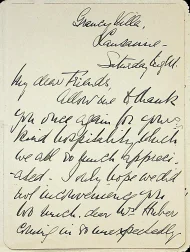 Grancy Villa,
Lausanne.
Saturday night.
My dear Friends,
Allow me to thank
you once again for your
kind hospitality which
we all so much appreci-
-ated. I only hope we did
not inconvenience you
too much. dear Mrs Huber
coming in so unexpectedly